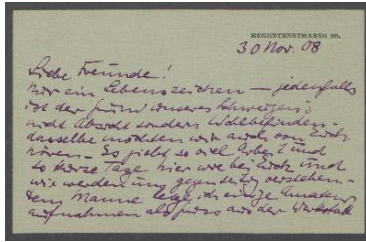 REGENTENSTRASSE 20.
30 Nov. 08
Liebe Freunde!
Nur ein Lebenszeichen – jedenfalls
ist der Grund unseres Schweigens
nicht Absicht sondern Wohlbefinden –
dasselbe möchten wir auch von Euch
hören – Es giebt so viel Arbeit und
so kurze Tage hier wie bei Euch und
wir werden uns gegenseitig verstehen –
dem Manne lege ich einige Amateur
aufnahmen als Gruss aus der Werkstatt